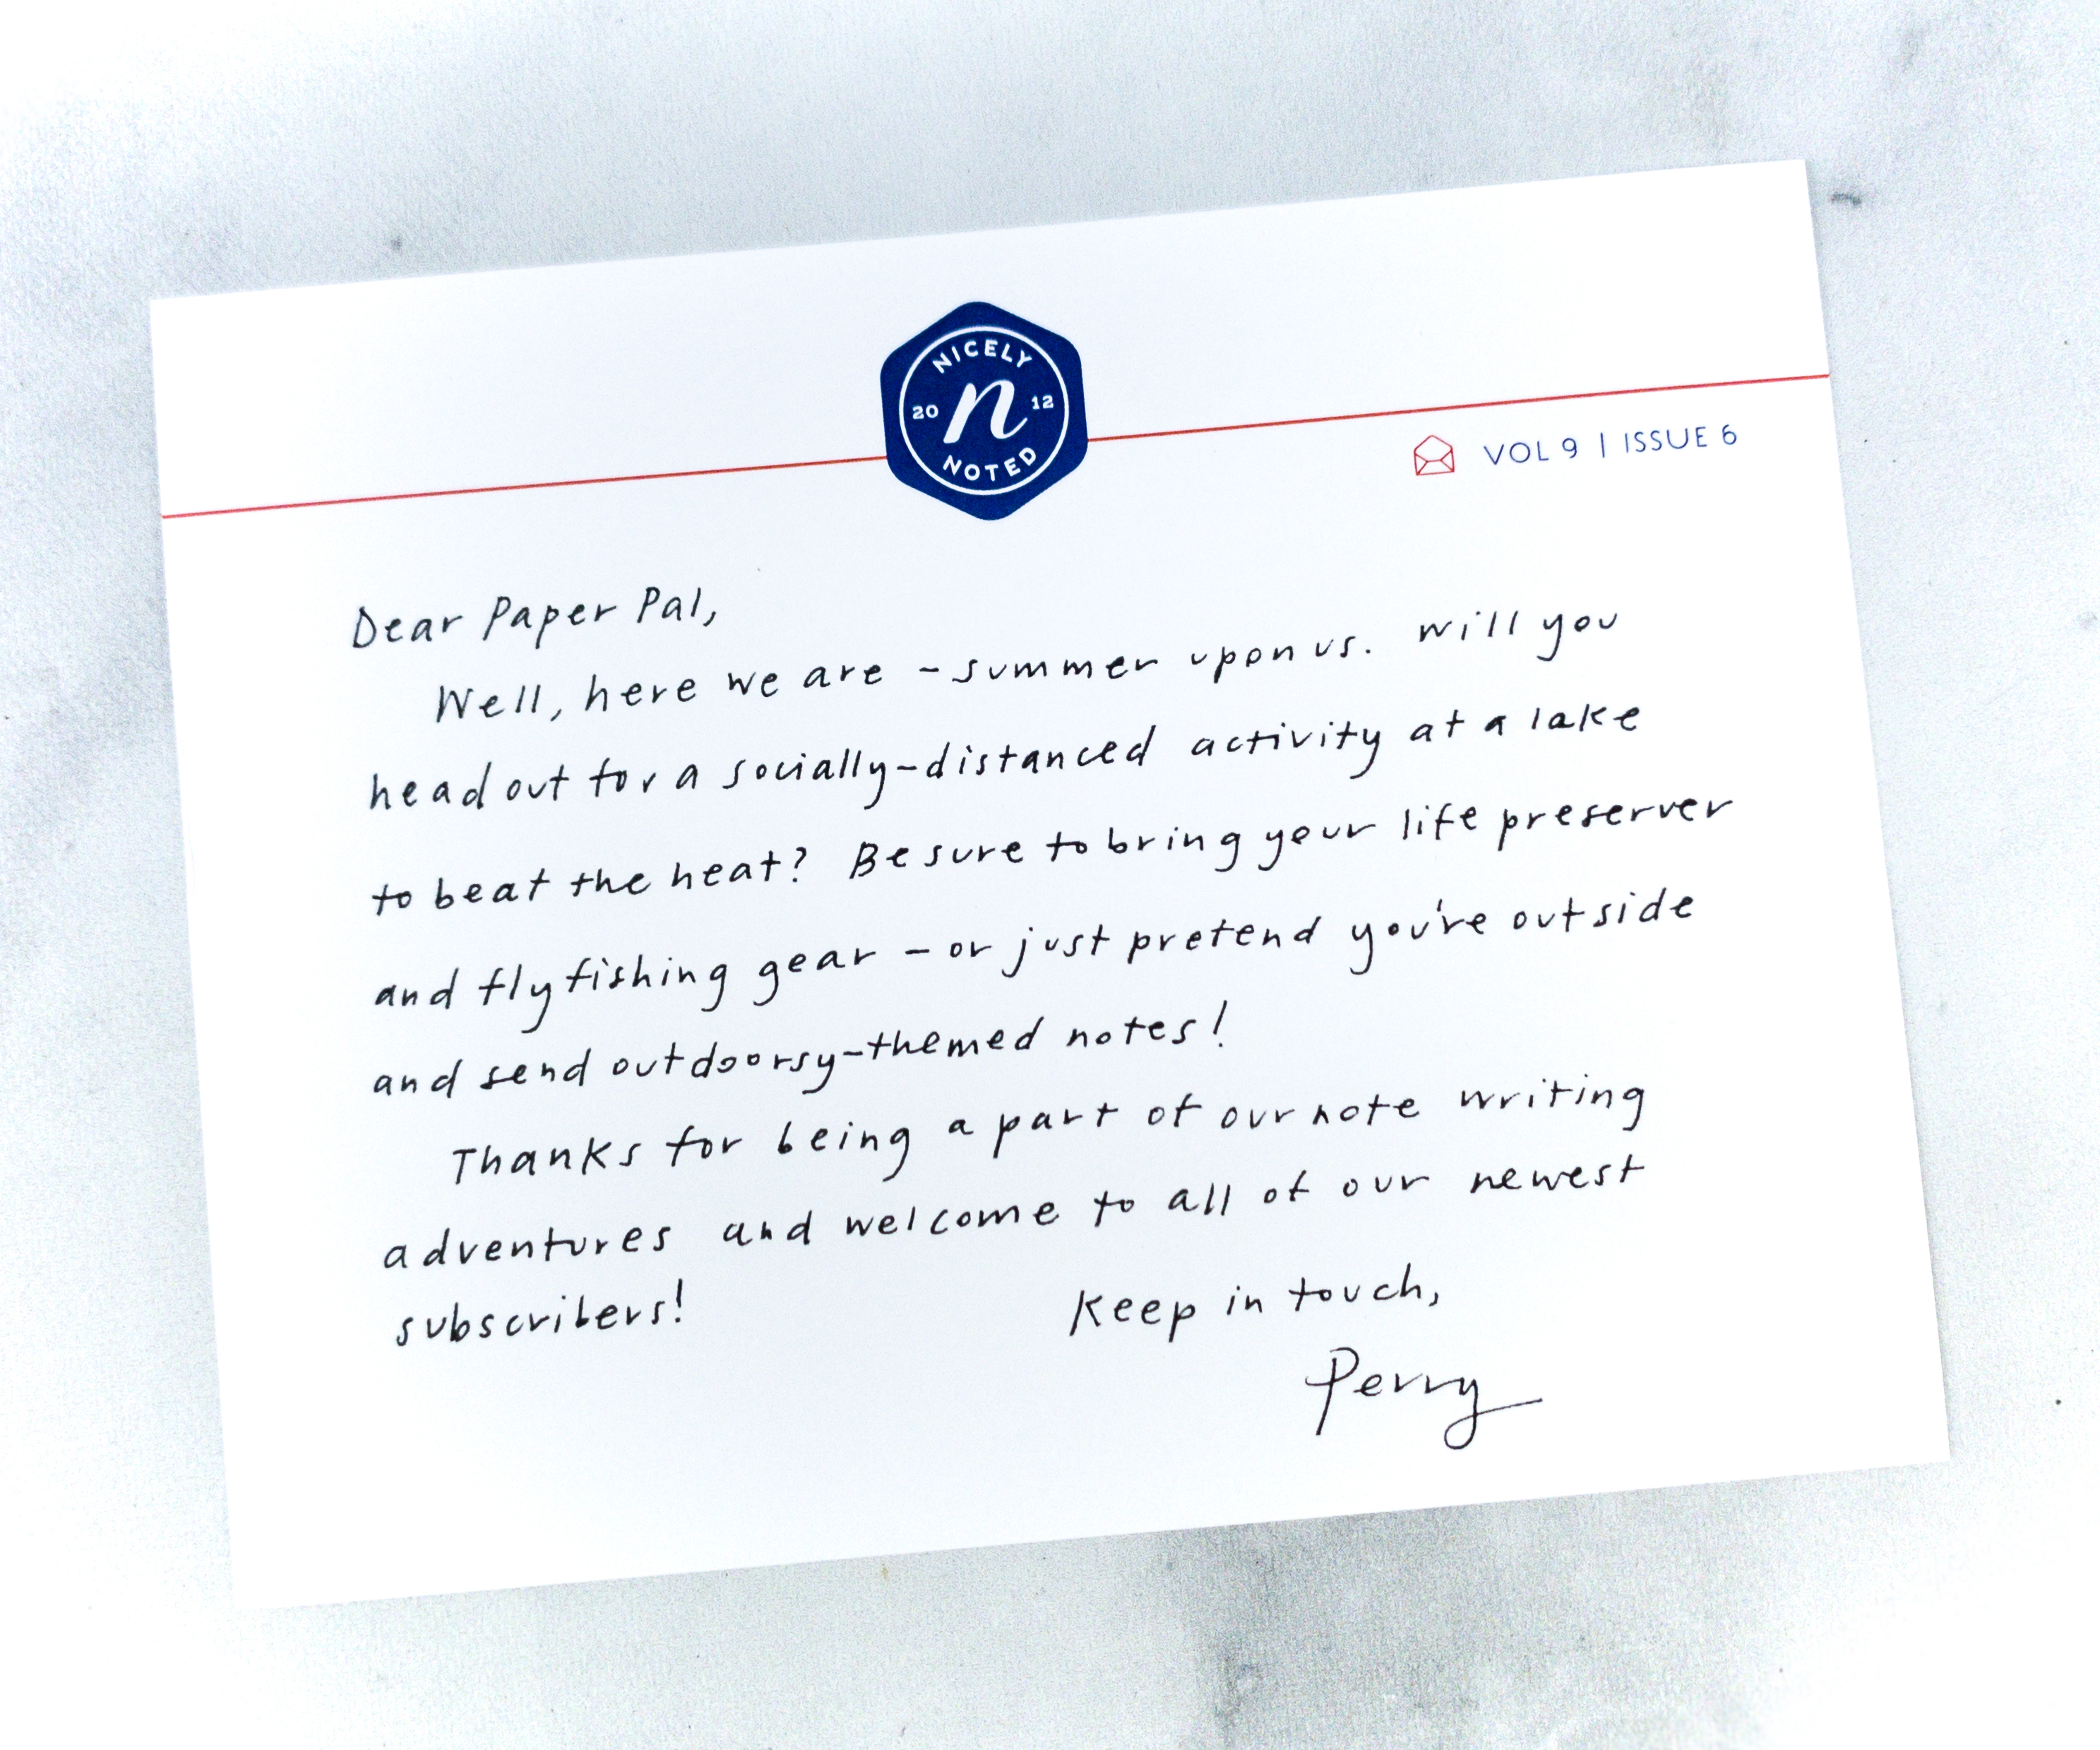 NICELY
20 n 12
NOTED
VOL 9 | ISSUE 6
Dear Paper Pal,
Well, here we are - summer upon us. Will you
head out for a socially-distanced activity at a lake
to beat the heat? Be sure to bring your life preserver
and fly fishing gear - or just pretend you're outside
and send outdoorsy-themed notes!
Thanks for being a part of our note writing
adventures and welcome to all of our newest
subscribers!
Keep in touch,
Perry